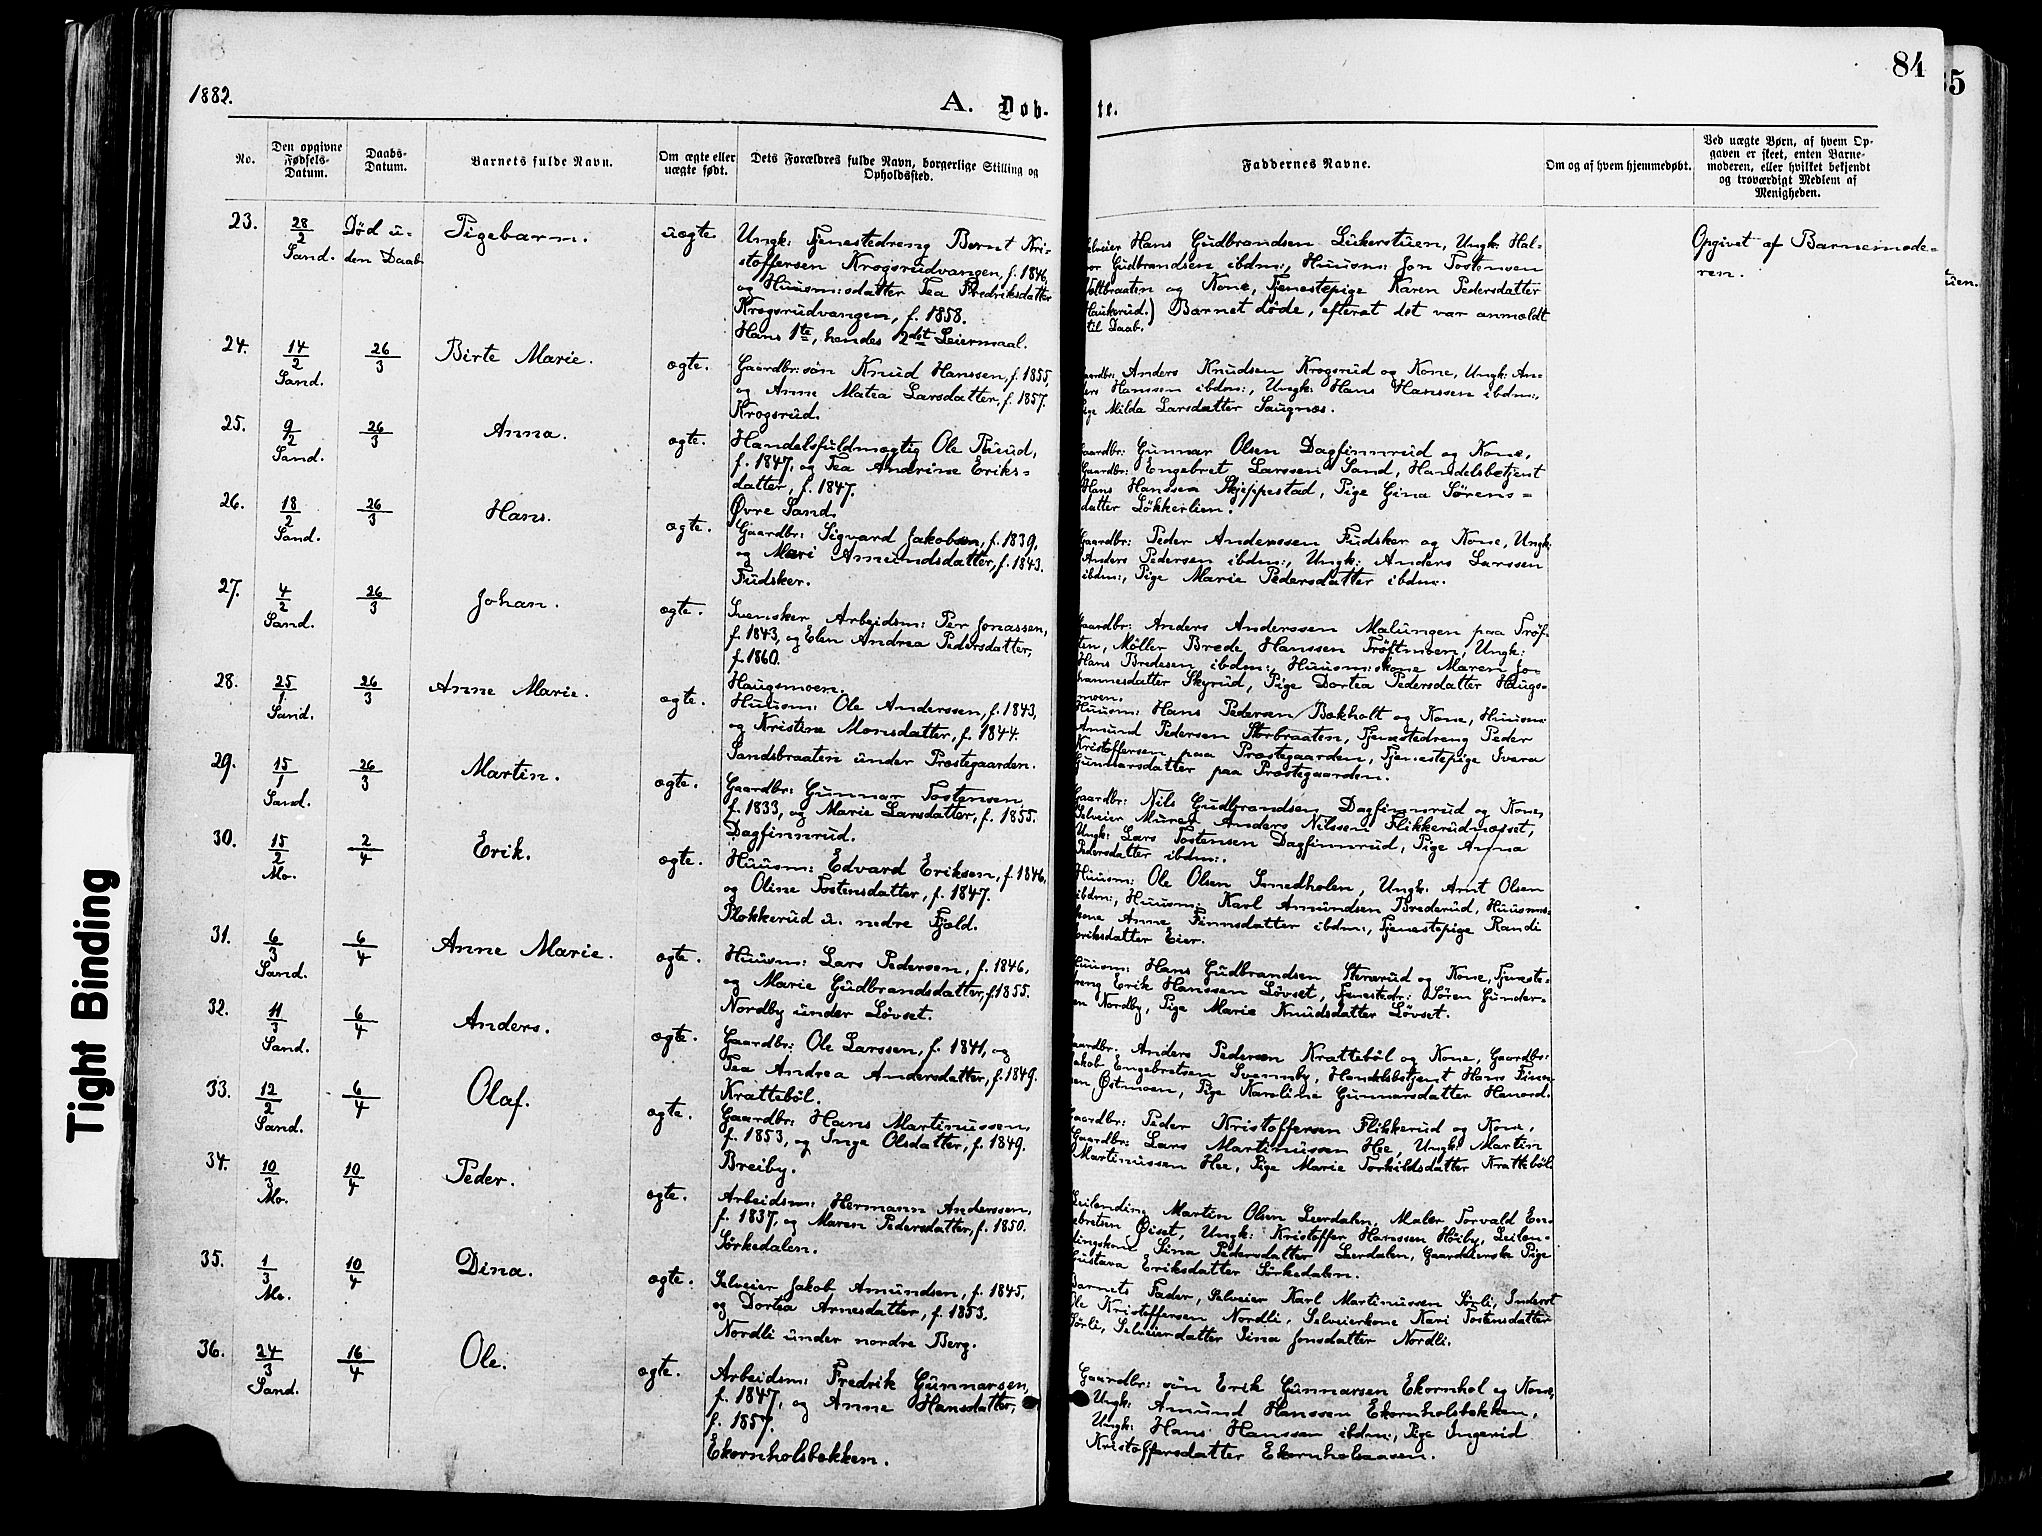 84
85
1882.
A. Døb-
te.
No.
Den opgivne Fødsels-Datum.
Daabs-Datum.
Barnets fulde Navn.
Om ægte eller uægte født.
Dets Forældres fulde Navn, borgerlige Stilling og Opholdssted.
Faddernes Navne.
Om og af hvem hjemmedøbt.
Ved uægte Børn, af hvem Opgaven er skeet, enten Barnemoderen, eller hvilket bekjendt og troværdigt Medlem af Menigheden.
23. 28/2 Sand. Død uden Daab. Pigebarn. uægte
Ungk: Tjenestedreng Bernt Kri-
stoffersen Krogsrudvangen, f. 1846,
og Huusm:sdatter Tea Fredriksdatter
Krogsrudvangen, f. 1858.
Hans 1te, hendes 2det Leiermaal.
Selveier Hans Gudbrandsen Lukerstuen, Ungk: Hal-
vor Gudbrandsen ibdm:, Huusm: Jon Tostensen
Holtbraaten og Kone, Tjenestepige Karen Pedersdatter
Haukerud.) Barnet døde, efterat det var anmeldt
til Daab.
Opgivet af Barnemode-
ren.
24. 14/2 Sand. 26/3 Birte Marie. ægte.
Gaardbr: søn Knud Hanssen, f. 1855,
og Anne Matea Larsdatter, f. 1857.
Krogsrud.
Gaardbr: Anders Knudsen Krogsrud og Kone, Ungk: An-
ders Hanssen ibdm:, Ungk: Hans Hanssen ibdm:,
Pige Milda Larsdatter Saugnæs.
25. 9/2 Sand. 26/3 Anna. ægte.
Handelsfuldmægtig Ole Ruud,
f. 1847, og Tea Andrine Eriks-
datter, f. 1847.
Øvre Sand.
Gaardbr: Gunnar Olsen Dagfinnrud og Kone,
Gaardbr: Engebret Larssen Sand, Handelsbetjent
Hans Hanssen Skjeppestad, Pige Gina Sørens-
datter Løkkerlien.
26. 18/2 Sand. 26/3 Hans. ægte.
Gaardbr: Sigvard Jakobsen, f. 1839.
og Mari Amundsdatter, f. 1843.
Fudsker.
Gaardbr: Peder Anderssen Fudsker og Kone, Ungk:
Anders Pedersen ibdm:, Ungk: Anders Larssen
ibdm:, Pige Marie Pedersdatter ibdm:
27. 4/2 Sand. 26/3 Johan. ægte.
Svensker Arbeidsm: Per Jonassen,
f. 1843, og Elen Andrea Pedersdatter,
f. 1860.
Haugsmoen.
Gaardbr: Anders Anderssen Malungen paa Trøf-
ten, Møller Brede Hanssen Trøftmoen, Ungk:
Hans Bredesen ibdm:, Huusm:skone Maren Jo-
hannesdatter Skyrud, Pige Dortea Pedersdatter Haugs-
moen.
28. 25/1 Sand. 26/3 Anne Marie. ægte.
Huusm: Ole Anderssen, f. 1843,
og Kristine Monsdatter, f. 1844.
Sandsbraaten under Prestegaarden.
Huusm: Hans Pedersen Bøkholt og Kone, Huusm:
Amund Pedersen Storbraaten, Tjenestedreng Peder
Kristoffersen paa Præstegaarden, Tjenestepige Svera
Gunnarsdatter paa Præstegaarden.
29. 15/1 Sand. 26/3 Martin. ægte.
Gaardbr: Gunnar Tostensen
f. 1833, og Marie Larsdatter, f. 1855.
Dagfinnrud.
Gaardbr: Nils Gudbrandsen Dagfinnrud og Kone,
Selveier Murer Anders Nilssen Flikkerudnæsset,
Ungk: Lars Tostensen Dagfinnrud, Pige Anna
Pedersdatter ibdm:.
30. 15/2 Mo. 2/4 Erik. ægte.
Huusm: Edvard Eriksen, f. 1846,
og Oline Tostensdatter, f. 1847.
Plokkerud u. nedre Fjeld.
Huusm: Ole Olsen Smedholen, Ungk: Arnt Olsen
ibdm:, Huusm: Karl Amundsen Brederud, Huusms-
kone Anne Finnsdatter ibdm:, Tjenestepige Randi
Eriksdatter Eier.
31. 6/3 Sand. 6/4 Anne Marie. ægte.
Huusm: Lars Pedersen, f. 1846,
og Marie Gudbrandsdatter, f. 1855.
Nordby under Løvset.
Huusm: Hans Gudbrandsen Stenerud og Kone, Tjeneste-
dreng Erik Hanssen Løvset, Tjenestedr: Søren Gunder-
sen Nordby, Pige Marie Knudsdatter Løvset.
32. 11/3 Sand. 6/4 Anders. ægte.
Gaardbr: Ole Larssen, f. 1841, og
Tea Andrea Andersdatter, f. 1849.
Kratteböl.
Gaardbr: Anders Pedersen Kratteböl og Kone, Gaardbr:
Jakob Engebretsen Svennby, Handelsbetjent Hans Finn-
sen Østmoen, Pige Karoline Gunnarsdatter Henord.
33. 12/2 Sand. 6/4 Olaf. ægte.
Gaardbr: Hans Martinussen,
f. 1853, og Inge Olsdatter, f. 1849.
Breiby.
Gaardbr: Peder Kristoffersen Flikkerud og Kone,
Gaardbr: Lars Martinussen Hee, Ungk: Martin
Martinussen Hee, Pige Marie Torkildsdatter Kratteböl.
34. 10/3 Mo. 10/4 Peder. ægte.
Arbeidsm: Hermann Anderssen,
f. 1837, og Maren Pedersdatter, f. 1850.
Sørkedalen.
Leilending Martin Olsen Leerdalen, Maler Torvald En-
gebretsen Øiset, Ungk: Kristoffer Hanssen Høiby, Leilen-
dingskone Sina Pedersdatter Leerdalen, Gaardbierske Pige
Gustava Eriksdatter Sørkedalen.
35. 1/3 Mo. 10/4 Dina. ægte.
Selveier Jakob Amundsen, f. 1845,
og Dortea Arnesdatter, f. 1853.
Nordli under nordre Berg.
Barnets Fader, Selveier Karl Martinussen Sørli, Inderst
Ole Kristoffersen Nordli, Selveierkone Kari Tostensdatter
Sørli, Selveierdatter Dina Jonsdatter Nordli.
36. 24/3 Sand. 16/4 Ole. ægte.
Arbeidsm: Fredrik Gunnarsen,
f. 1847, og Anne Hansdatter,
f. 1857.
Ekornholsbekken.
Gaardbr: søn Erik Gunnarsen Ekornhol og Kone,
Ungk: Amund Hanssen Ekornholsbekken,
Ungk: Hans Hanssen ibdm:, Pige Ingerid
Kristoffersdatter Ekornholsaasen.
Tight Binding